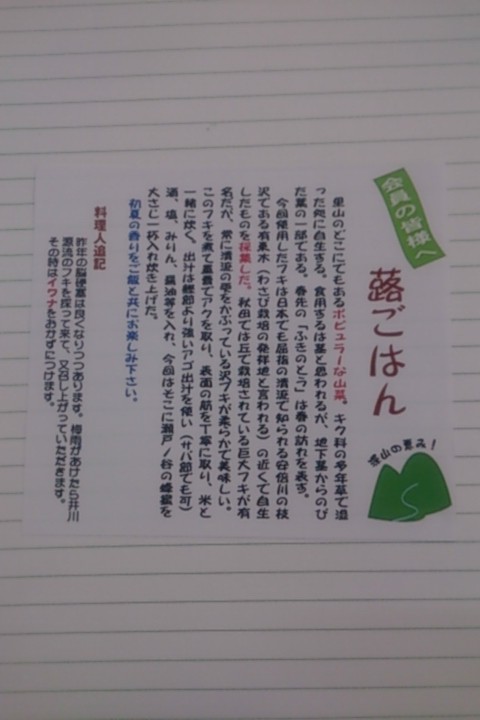 会員の皆様へ
蕗ごはん
深山の恵み！
里山のどこにでもあるポピュラーな山菜。キク科の多年草で湿
った処に自生する。食用するは茎と思われるが、地下茎からのび
た葉の一部である。春先の「ふきのとう」は春の訪れを表す。
今回使用したフキは日本でも屈指の清流で知られる安倍川の枝
沢である有東木（わさび栽培の発祥地と言われる）の近くで自生
したものを採集した。秋田では丘で栽培されている巨大フキが有
名だが、常に清流の雫をかぶっている沢ブキが柔らかで美味しい。
このフキを煮て重曹でアクを取り、表面の筋を丁寧に取り、米と
一緒に炊く。出汁は鰹節より強いアゴ出汁を使い（サバ節でも可）
酒、塩、みりん、醤油等を入れ、今回はそこに瀬戸ノ谷の蜂蜜を
大さじ一杯入れ炊き上げた。
初夏の香りをご飯と共にお楽しみ下さい。
料理人追記
昨年の脳梗塞は良くなりつつあります。梅雨があけたら井川
源流のフキを採って来て、又召し上がっていただきます。
その時はイワナをおかずにつけます。